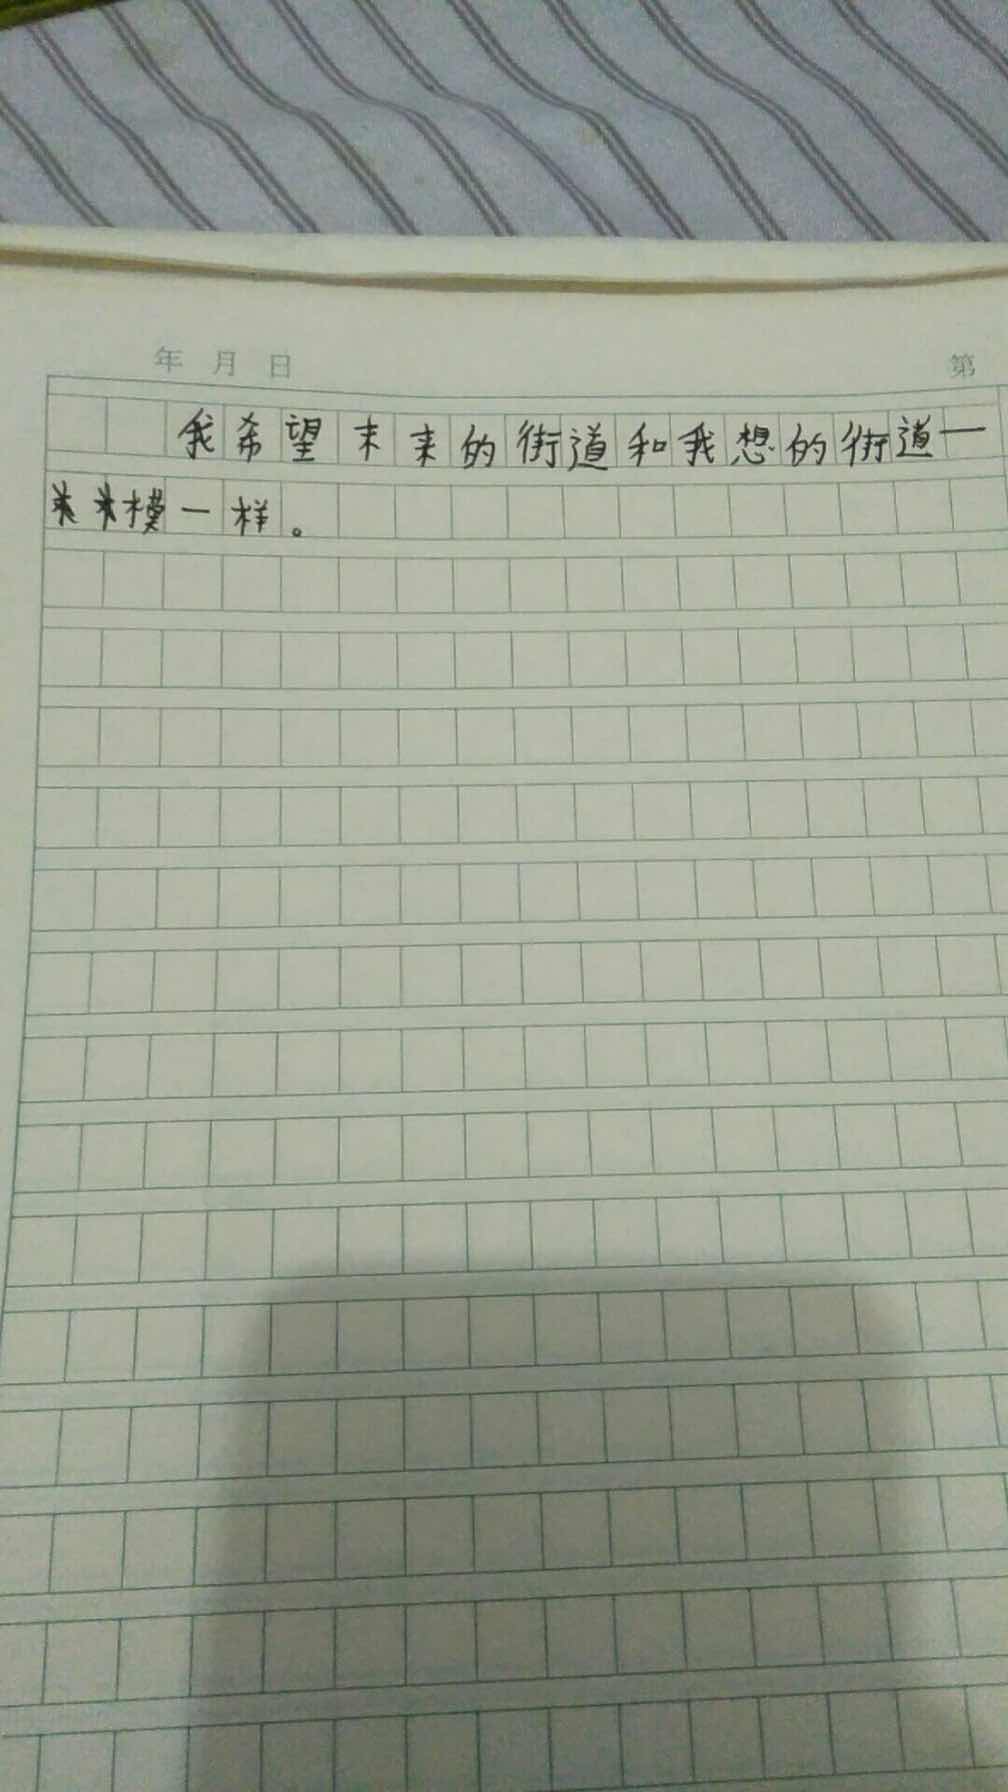 年 月 日
第
我希望未来的街道和我想的街道一
模一样。